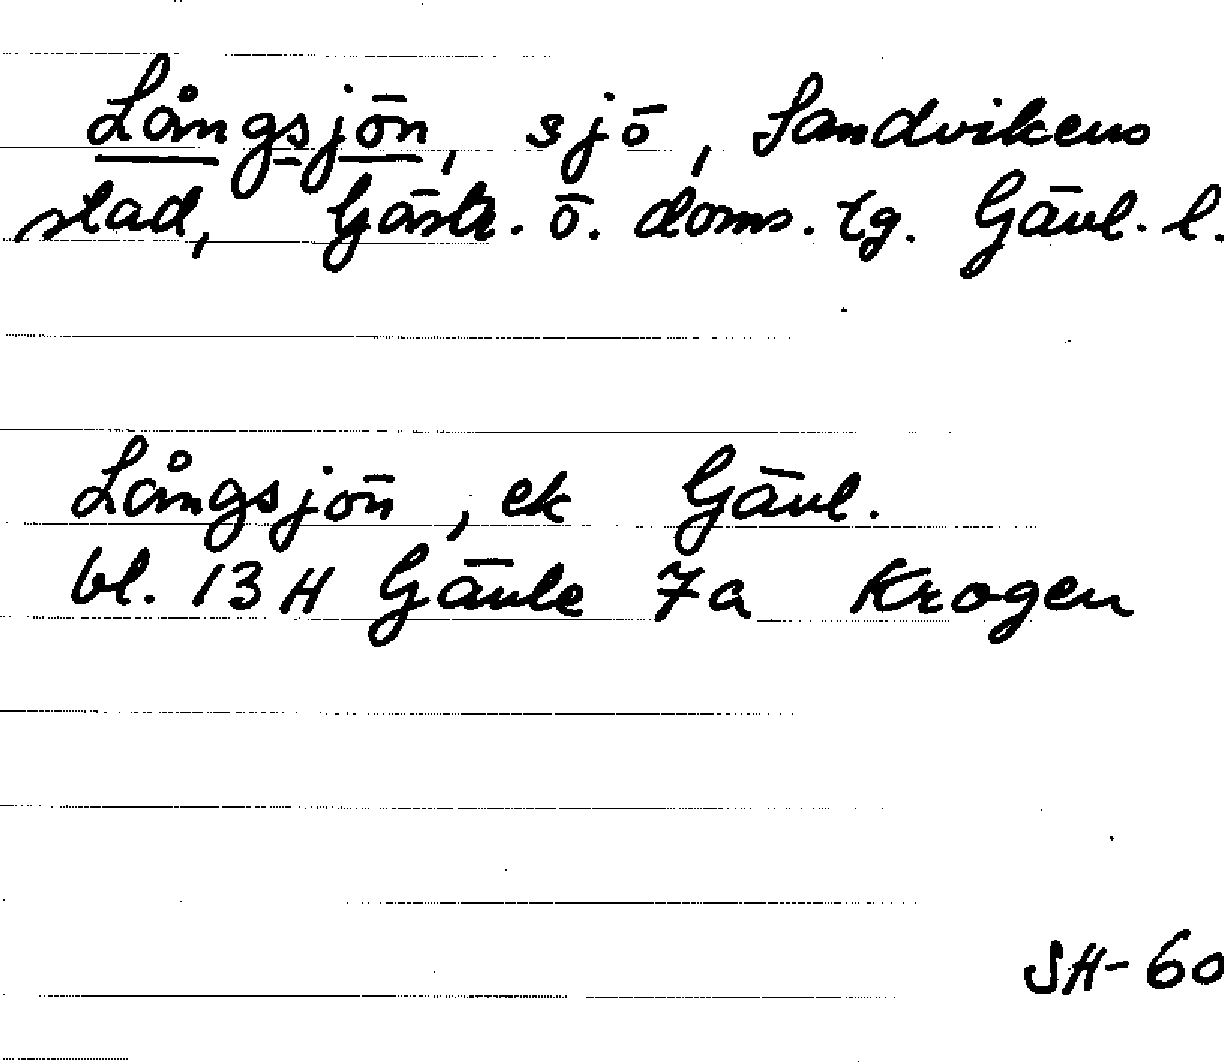 Långsjön, sjö, Sandvikens
stad, Gästr. ö. doms. tg. Gävl. l.
Långsjön, ek Gävl.
bl. 13 H Gävle 7a Krogen
SH-60